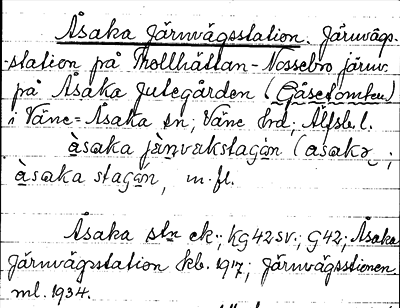 Åsaka Järnvägsstation. Järnvägs-
-station på Trollhättan-Nossebro järnv.
på Åsaka Julegården (Gåsetomten)
i Väne-Åsaka sn, Väne hrd, Älfsb. l.
àsaka jànvakstagån (asakə ;
àsaka stagån, m. fl.
Åsaka stn ek.; KG42SV.; G42; Åsaka
Järnvägsstation kb. 1917; Järnvägsstionen
ml. 1934.